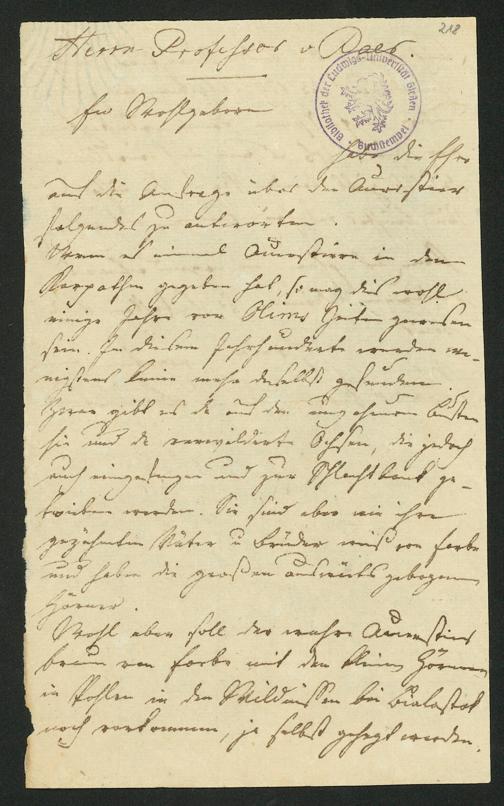 218
Herrn Professor v Baer.
Bibliothek der Ludwigs-Universität Gießen
Buchstempel
Ew Wohlgeborn
habe die Ehre
auf die Anfrage über den Auerstier
folgendes zu antworten.
Wenn es einmal Auerstiere in den
Karpathen gegeben hat, so mag dies wohl
einige Jahre vor Zeiten gewesen
sein. In diesem Jahrhunderte wurden we-
nigstens keine mehr daselbst gefunden.
Zwar gibt es da auf den ungeheuren
hie und da verwilderte Ochsen, die jedoch
auch eingefangen und zur Schlachtbank ge-
trieben werden. Sie sind aber wie ihre
gezähmten Väter u Brüder weiß von Farbe
und haben die großen auswärts gebogenen
Hörner.
Wohl aber soll der wahre Auerstier
braun von Farbe mit den kleinen Hörnern
in Pohlen in den Wildnissen bei Bialastok
noch vorkommen, ja selbst gehegt werden.